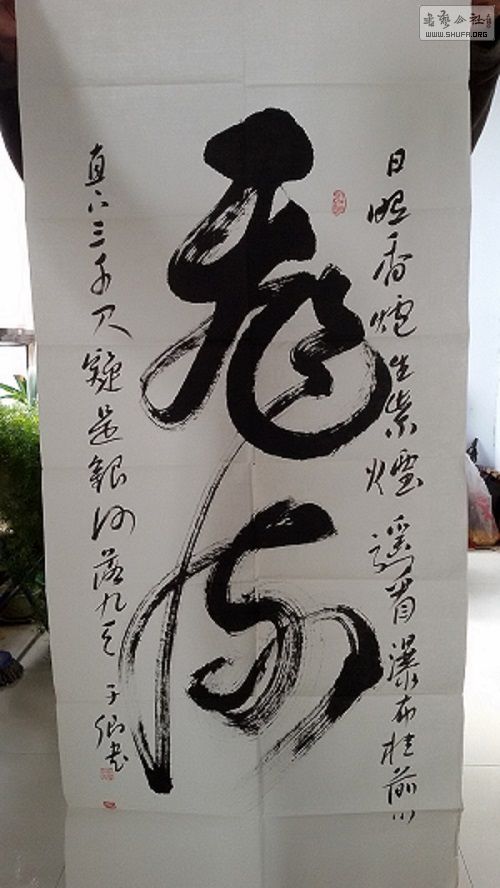 書藝公社
WWW.SHUFA.ORG
日照香爐生紫煙遥看瀑布挂前川
飛流
直下三千尺疑是銀河落九天 子卿书